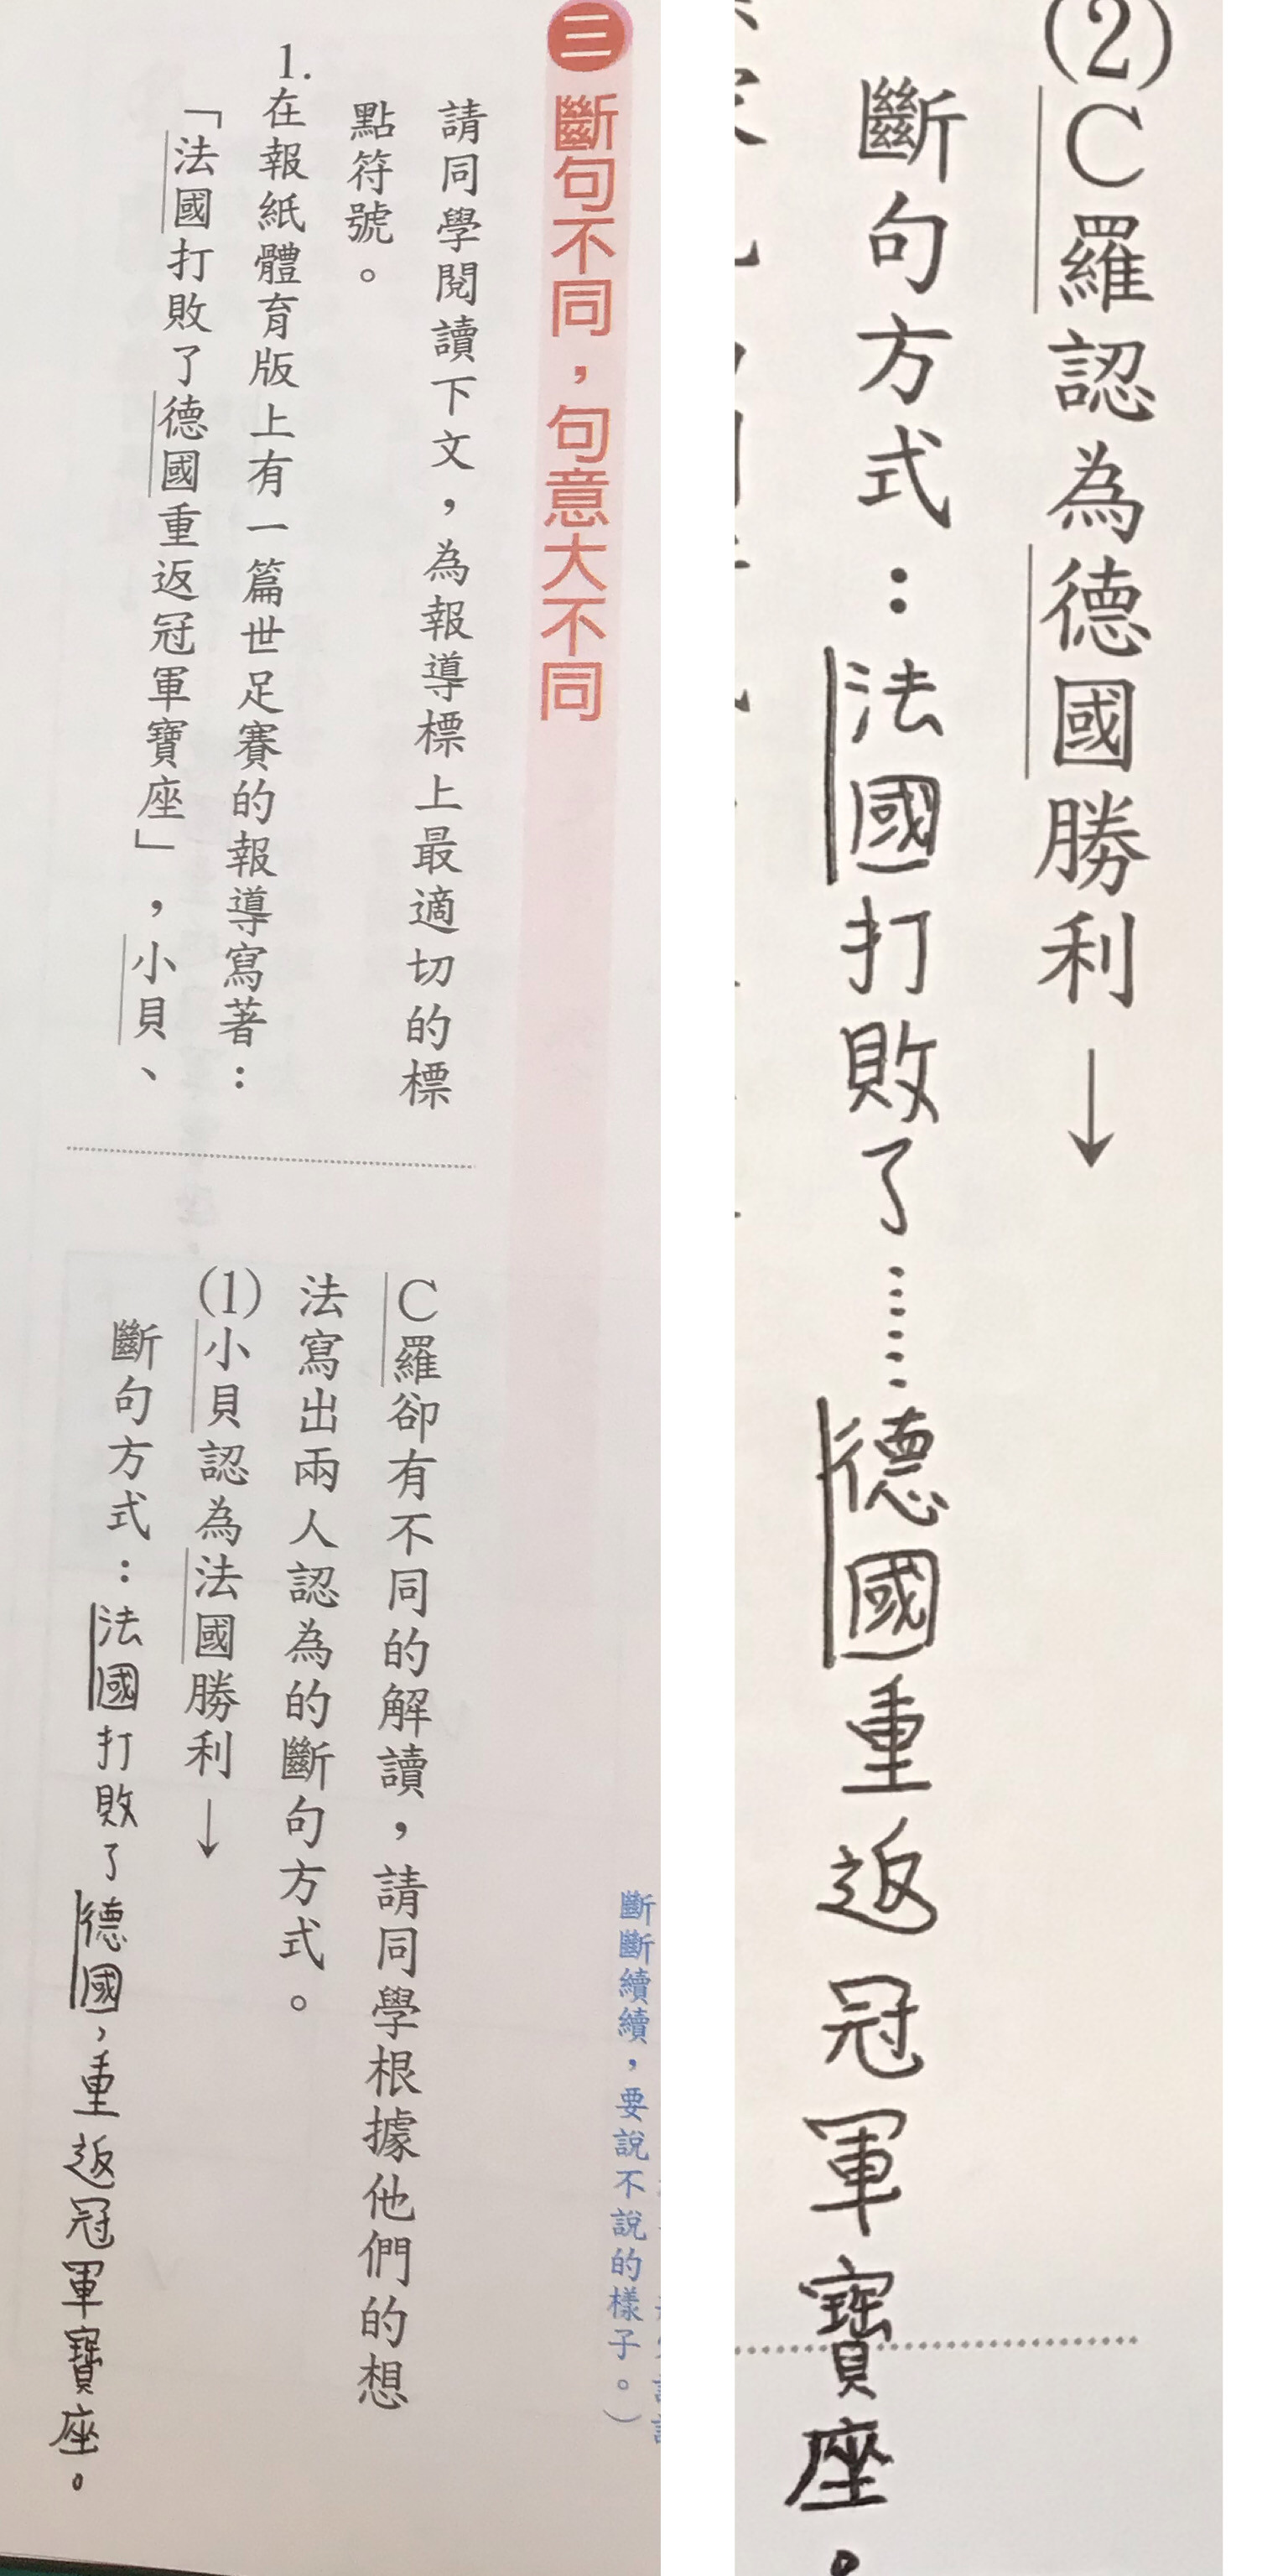 三 斷句不同，句意大不同
請同學閱讀下文，為報導標上最適切的標
點符號。
1.在報紙體育版上有一篇世足賽的報導寫著：
「法國打敗了德國重返冠軍寶座」，小貝、
C羅卻有不同的解讀，請同學根據他們的想
法寫出兩人認為的斷句方式。
(1)小貝認為法國勝利→
斷句方式：法國打敗了德國，重返冠軍寶座。
斷斷續續，要說不說的樣子。）
(2)C羅認為德國勝利→
斷句方式：法國打敗了……德國重返冠軍寶座。